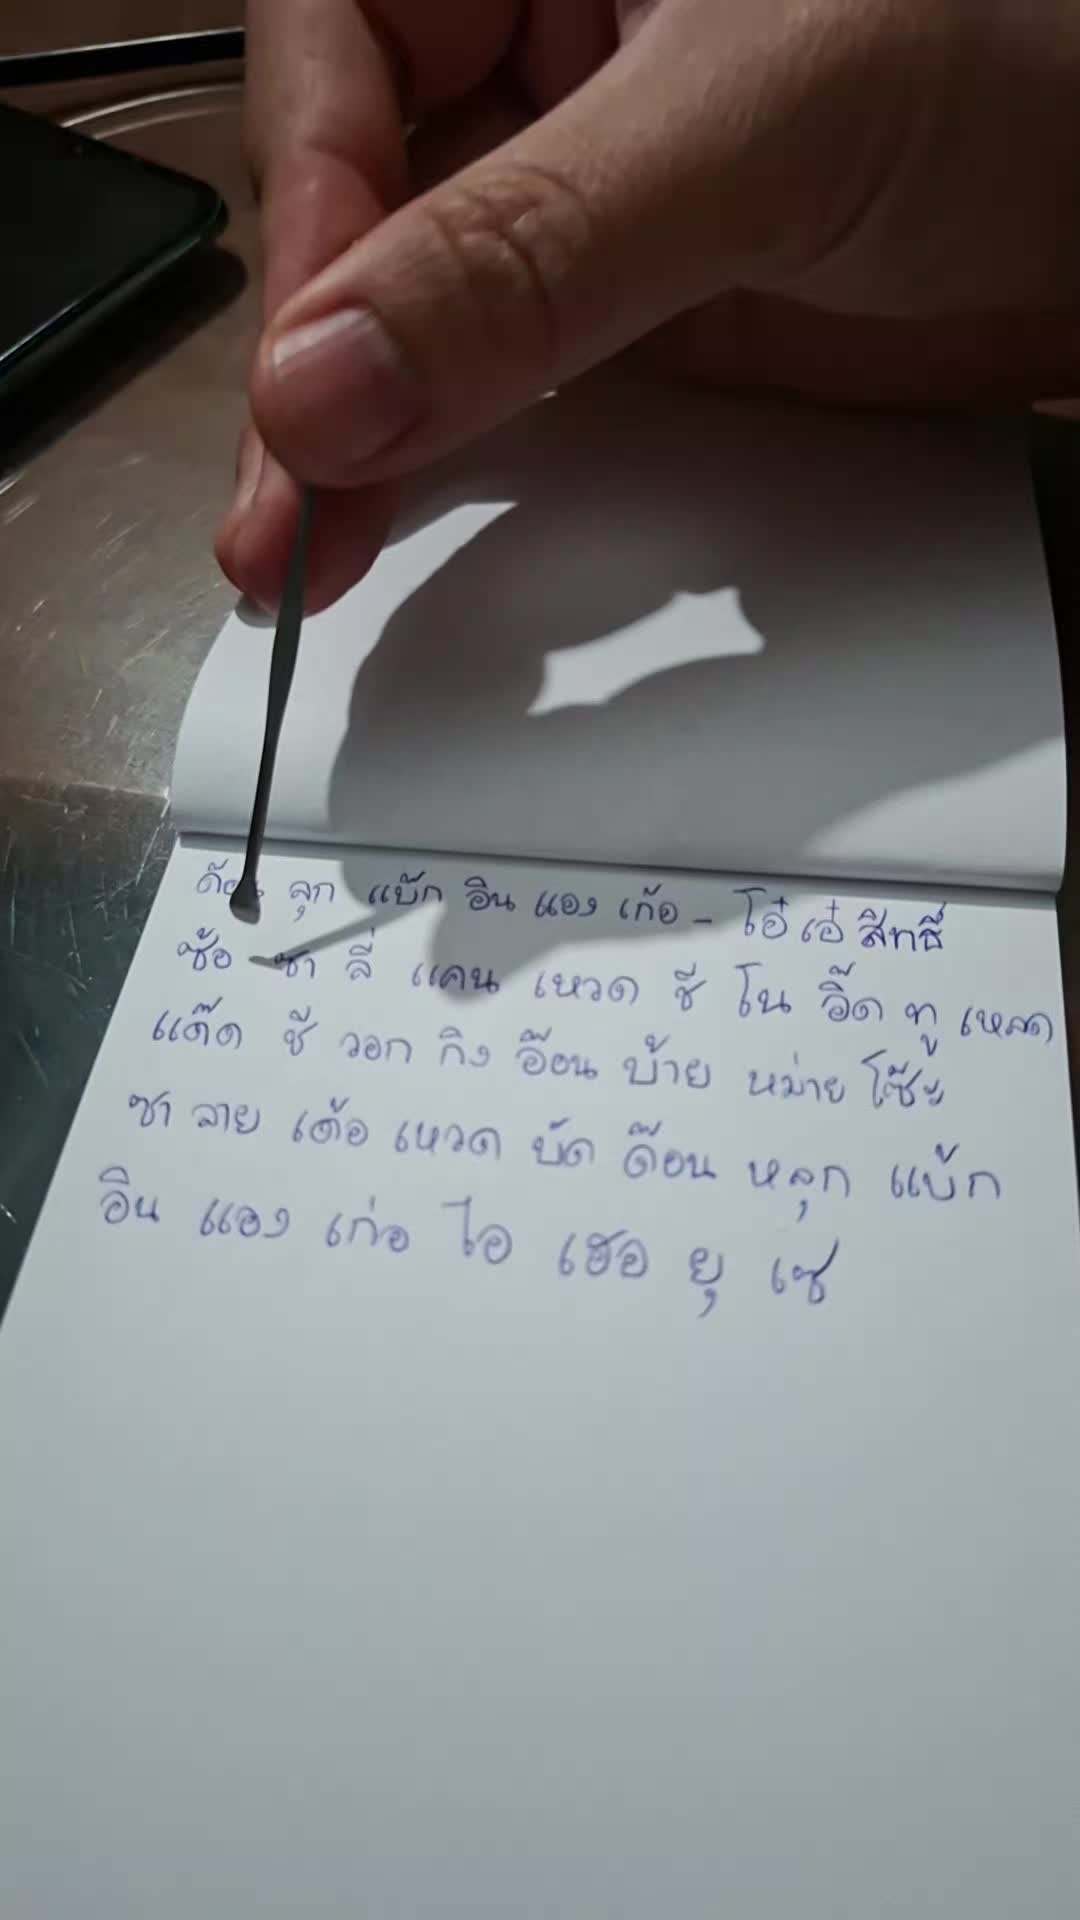 ด้อน ลุก แบ๊ก อิน แอง เก้อ - โอ๋ เอ๋ สิทธิ์
ซ้อ ซา ลี่ แคน เหวด ชี โน อิ๊ด ทู เหลด
แด๊ด ชี วอก กิง อ๊อน บ้าย หม่าย โซ๊ะ
ซา ลาย เด้อ เหวด บัด ด๊อน หลุก แบ้ก
อิน แอง เก่อ ไอ เฮอ ยุ เซ